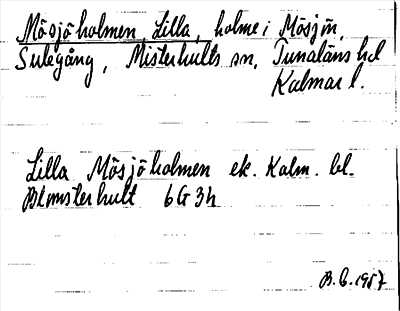 Mösjöholmen, Lilla, holme i Mösjön,
Sulegång, Misterhults sn, Tunaläns hd
Kalmar l.
Lilla Mösjöholmen ek. Kalm. bl.
Blomsterhult 6G3h
B.G. 1957